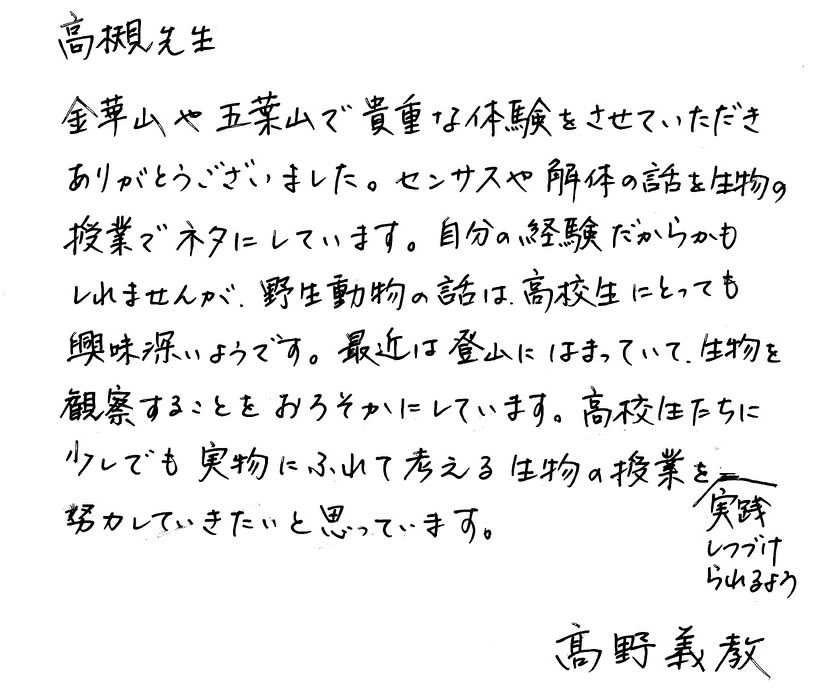 高槻先生
金華山や五葉山で貴重な体験をさせていただき
ありがとうございました。センサスや解体の話を生物の
授業でネタにしています。自分の経験だからかも
しれませんが、野生動物の話は、高校生にとっても
興味深いようです。最近は登山にはまっていて、生物を
観察することをおろそかにしています。高校生たちに
少しでも実物にふれて考える生物の授業を
実践
しつづけ
られるよう
努力していきたいと思っています。
髙野義教